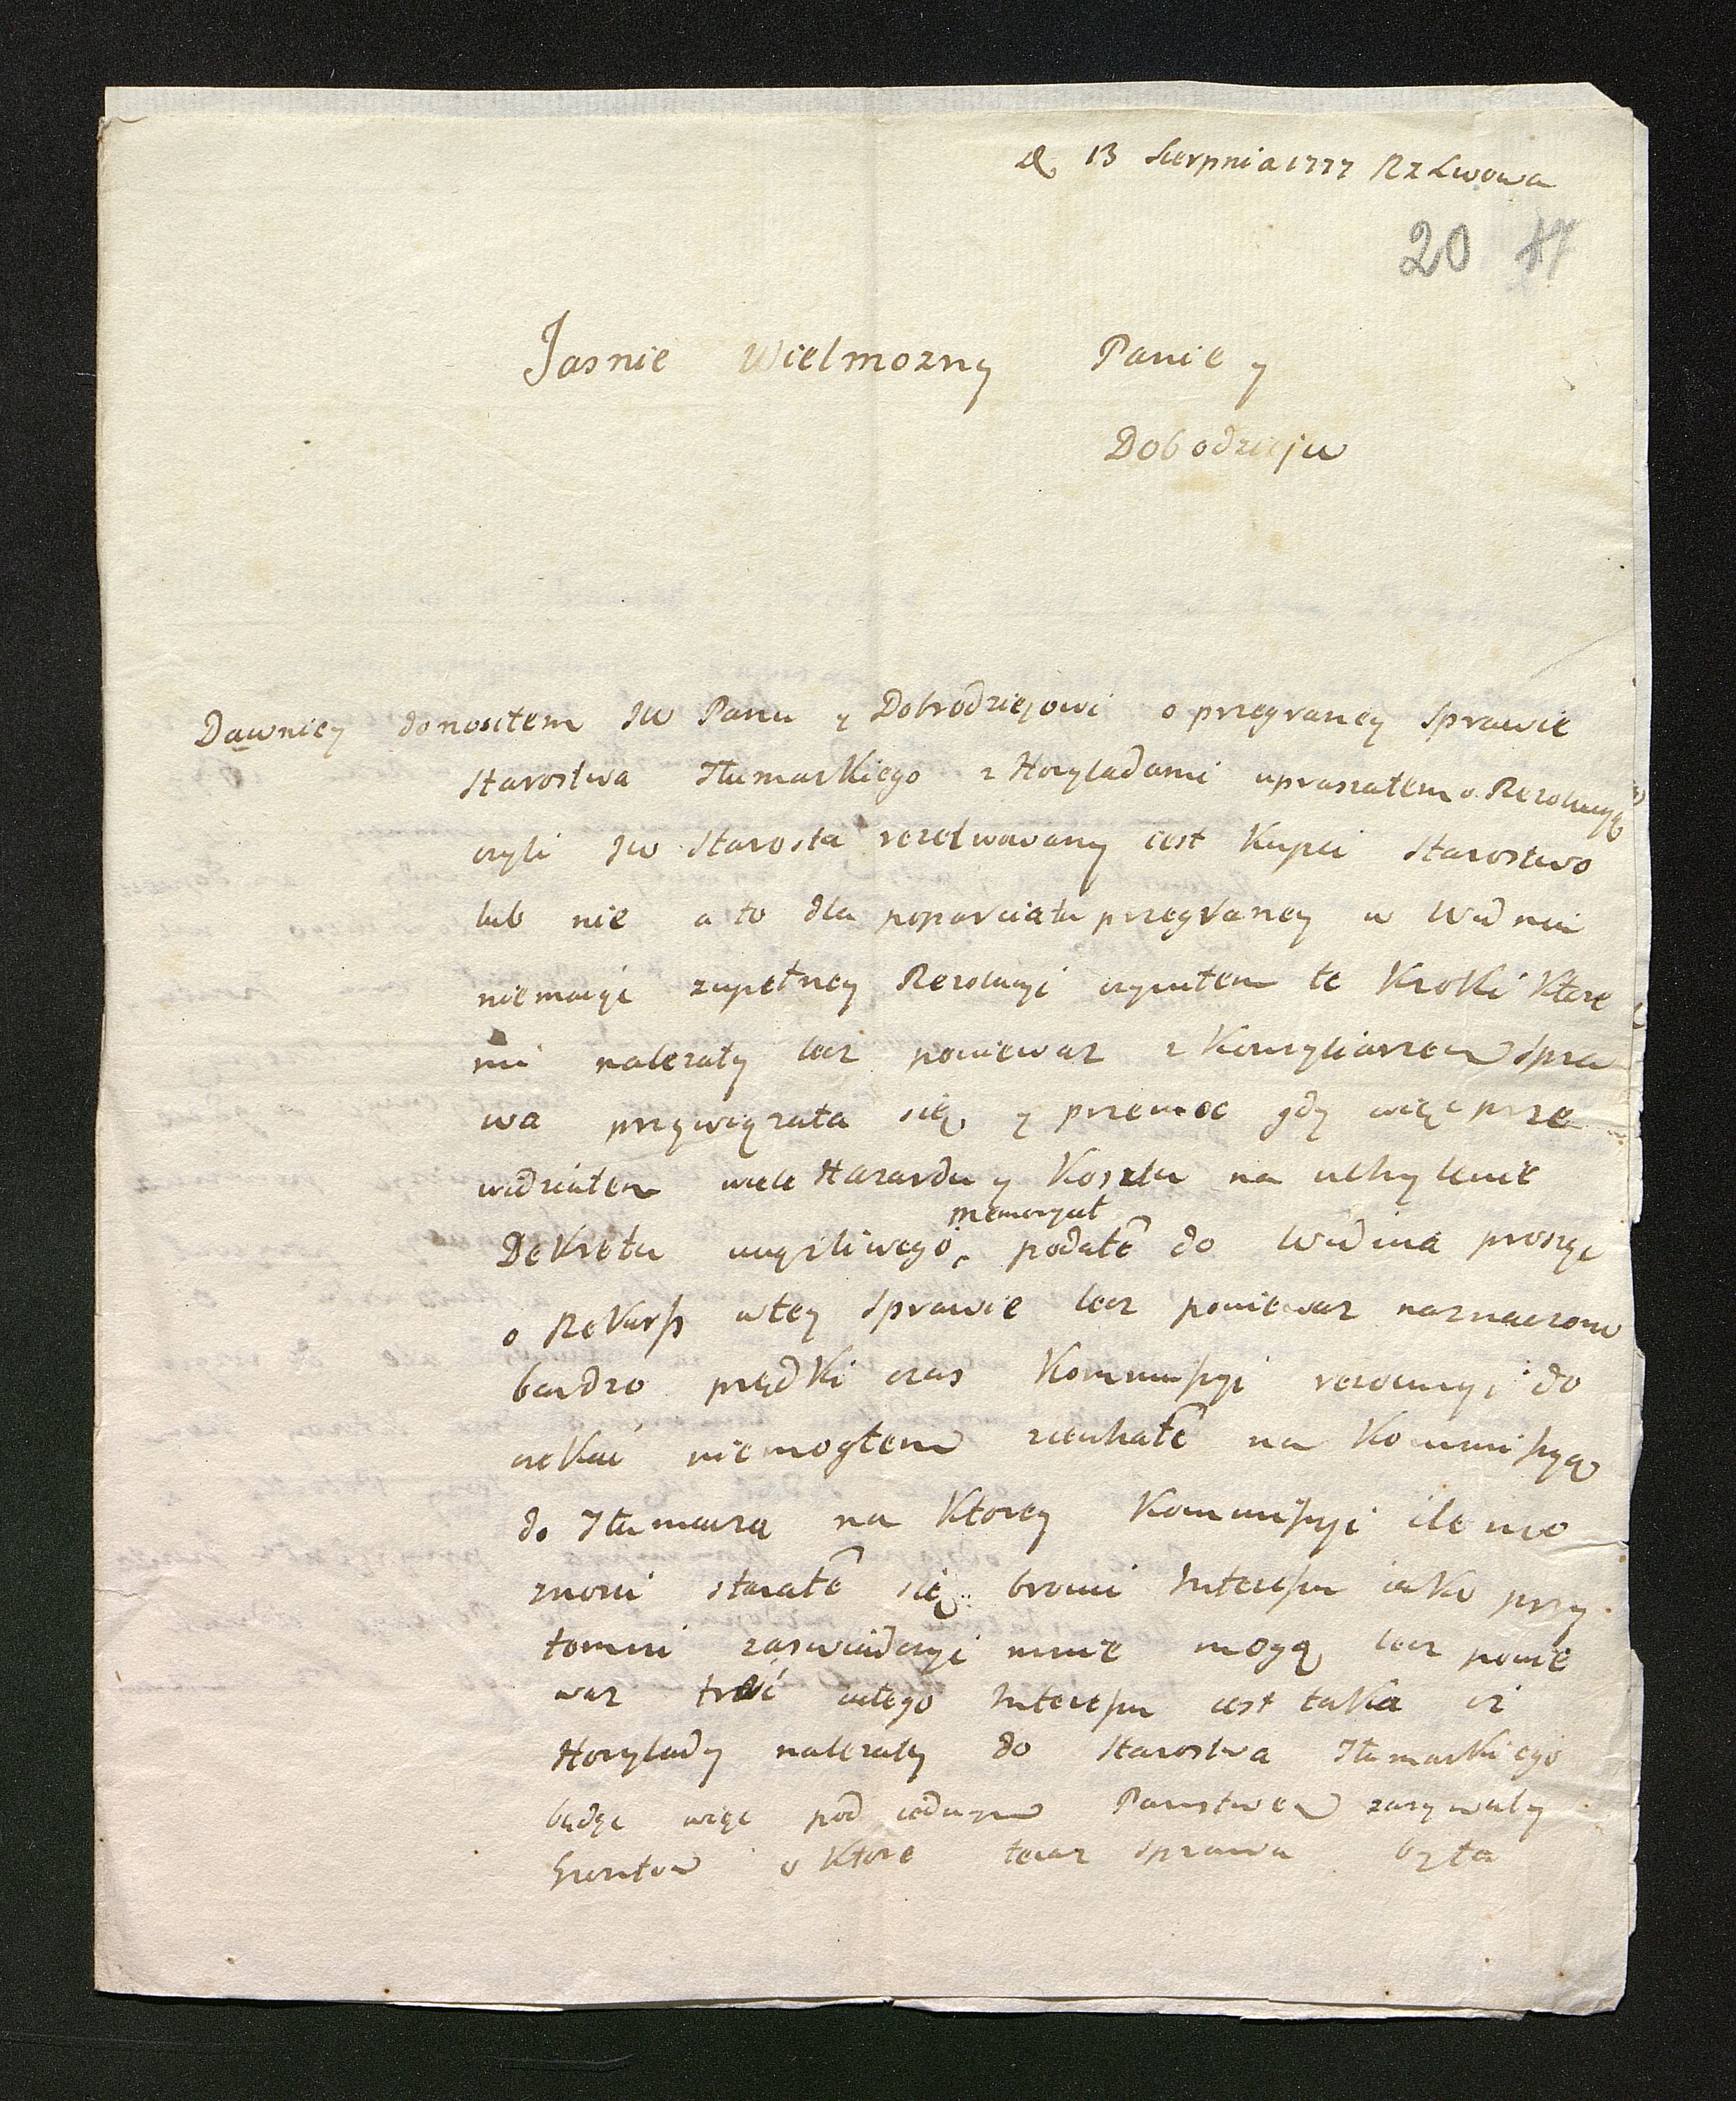 d 13 Sierpnia 1777 R z Lwowa
20 17
Jasnie Wielmozny Panie y
Dobodzieju
Dawniey donosiłem JW Panu y Dobrodziejowi o przegraney Sprawie
Starostwa Tłumaskiego z Horyladami upraszałem o Rezolucyą
czyli JW Starosta rezolwowany iest Kupic Starostwo
lub nie a to dla poparciata przegraney w Widniu
niemaiąc zupełney Rezolucyi czyniłem te Kroki Ktore
mi nalezały lecz poniewaz z Konsyliarzem Spra
wa przywiązała się y przemoc gdy więc prze
widziałem wiele Hazardu y Kosztu na uchylenie
memoryał
Dekretu uciązliwego podałē do Widnia prosząc
o Rekurs wtey Sprawie lecz poniewaz naznaczono
bardzo prędki czas Kommissyi rezolucyi do
czekac niemogłem ziechałē na Kommissyą
do Tłumacza na Ktorey Kommissyi ile mo
znosci starałē się bronic Interessu iako przy
tomni zaswiadczyc mnie mogą lecz ponie
waz treść całego Interessu iest taka iz
Horylady nalezały do Starostwa Tłumaskiego
będąc więc pod iednym Panstwem zazywały
Gruntow o Ktore teraz Sprawa była